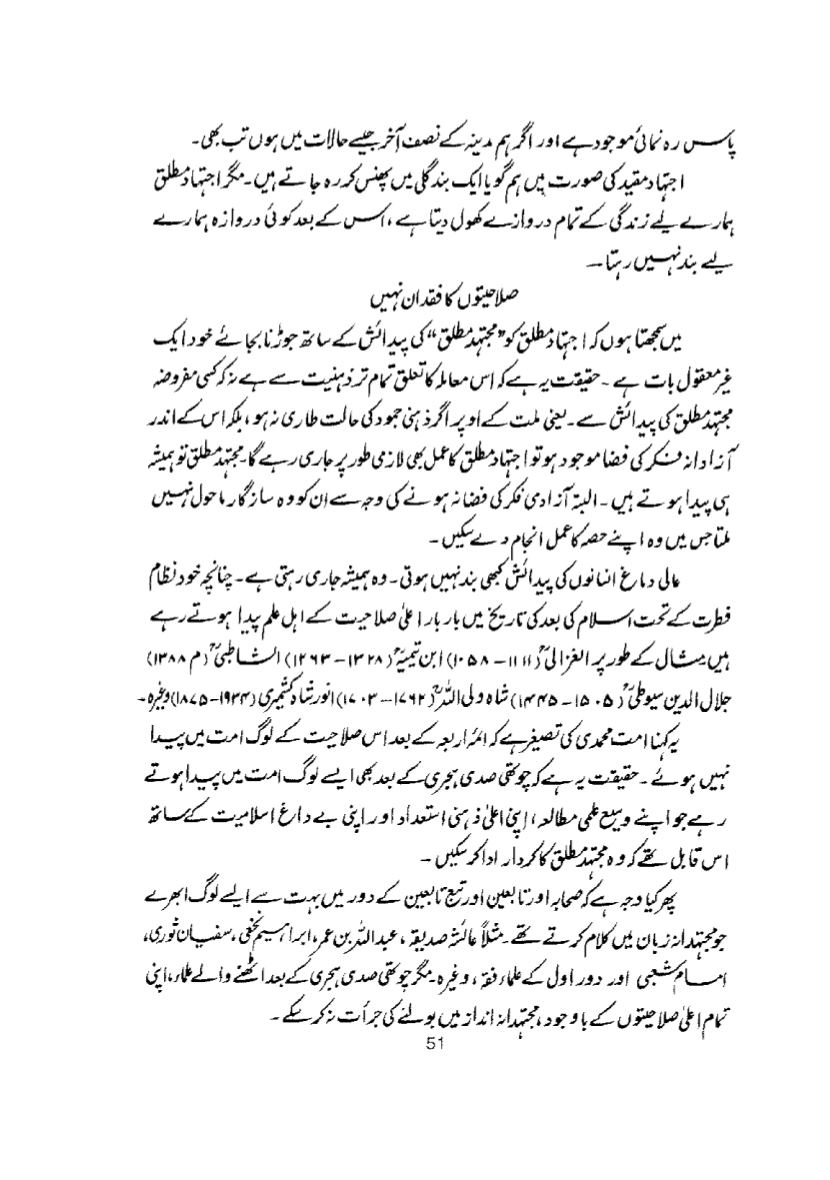 پاس رہ نمائی موجود ہے اور اگر ہم مدینہ کے نصف آخر جیسے حالات میں ہوں تب بھی۔
اجتہاد مقید کی صورت میں ہم گویا ایک بند گلی میں پھنس کر رہ جاتے ہیں۔ مگر اجتہاد مطلق
ہمارے لیے زندگی کے تمام دروازے کھول دیتا ہے ، اس کے بعد کوئی دروازہ ہمارے
لیے بند نہیں رہتا۔
صلاحیتوں کا فقدان نہیں
میں سمجھتا ہوں کہ اجتہاد مطلق کو "مجتہد مطلق" کی پیدائش کے ساتھ جوڑنا بجائے خود ایک
غیر معقول بات ہے ۔ حقیقت یہ ہے کہ اس معاملہ کا تعلق تمام تر ذہنیت سے ہے نہ کہ کسی مفروضہ
مجتہد مطلق کی پیدائش سے ۔ یعنی ملت کے اوپر اگر ذہنی جمود کی حالت طاری نہ ہو ، بلکہ اس کے اندر
آزادانہ فکر کی فضا موجود ہو تو اجتہاد مطلق کا عمل بھی لازمی طور پر جاری رہے گا۔ مجتہد مطلق تو ہمیشہ
ہی پیدا ہوتے ہیں ۔ البتہ آزادی فکر کی فضا نہ ہونے کی وجہ سے ان کو وہ سازگار ماحول نہیں
ملتا جس میں وہ اپنے حصہ کا عمل انجام دے سکیں ۔
عالی دماغ انسانوں کی پیدائش کبھی بند نہیں ہوتی ۔ وہ ہمیشہ جاری رہتی ہے ۔ چنانچہ خود نظام
فطرت کے تحت اسلام کی بعد کی تاریخ میں بار بار اعلیٰ صلاحیت کے اہل علم پیدا ہوتے رہے
ہیں مثال کے طور پر الغزالیؒ (۱۱۱۱ – ۱۰۵۸) ابن تیمیہؒ (۱۳۲۸ – ۱۲۶۳) الشاطبیؒ (م ۱۳۸۸)
جلال الدین سیوطیؒ (۱۵۰۵ – ۱۴۴۵) شاہ ولی اللہؒ (۱۷۶۲ – ۱۷۰۳) انور شاہ کشمیری (۱۹۳۴–۱۸۷۵) وغیرہ ۔
یہ کہنا امت محمدی کی تصغیر ہے کہ ائمہ اربعہ کے بعد اس صلاحیت کے لوگ امت میں پیدا
نہیں ہوئے ۔ حقیقت یہ ہے کہ چوتھی صدی ہجری کے بعد بھی ایسے لوگ امت میں پیدا ہوتے
رہے جو اپنے وسیع علمی مطالعہ ، اپنی اعلیٰ ذہنی استعداد اور اپنی بے داغ اسلامیت کے ساتھ
اس قابل تھے کہ وہ مجتہد مطلق کا کردار ادا کر سکیں ۔
پھر کیا وجہ ہے کہ صحابہ اور تابعین اور تبع تابعین کے دور میں بہت سے ایسے لوگ ابھرے
جو مجتہدانہ زبان میں کلام کرتے تھے ۔ مثلاً عائشہ صدیقہ ، عبد اللہ بن عمر ، ابراہیم نخعی ، سفیان ثوری ،
امام شعبی اور دور اول کے علماء فقہ ، وغیرہ ۔ مگر چوتھی صدی ہجری کے بعد اٹھنے والے علماء ، اپنی
تمام اعلیٰ صلاحیتوں کے باوجود ، مجتہدانہ انداز میں بولنے کی جرأت نہ کر سکے ۔
51